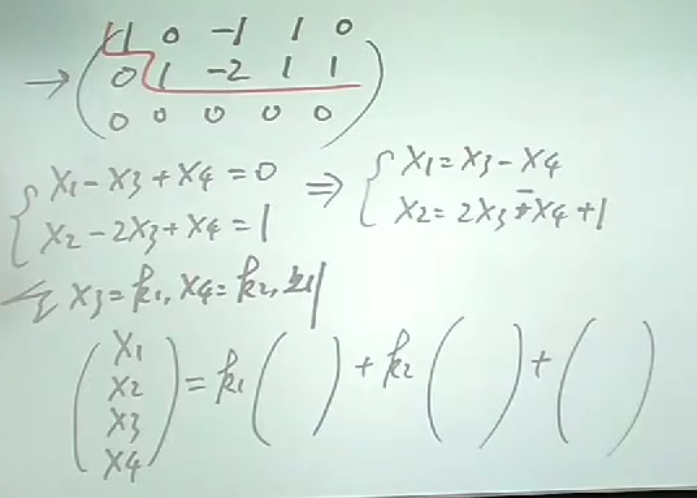 1 0 -1 1 0
→ 0 1 -2 1 1
0 0 0 0 0
{ x1 - x3 + x4 = 0 ⇒ { x1 = x3 - x4
x2 - 2x3 + x4 = 1 x2 = 2x3 - x4 + 1
令 x3 = k1, x4 = k2, 则
(x1 x2 x3 x4) = k1 ( ) + k2 ( ) + ( )